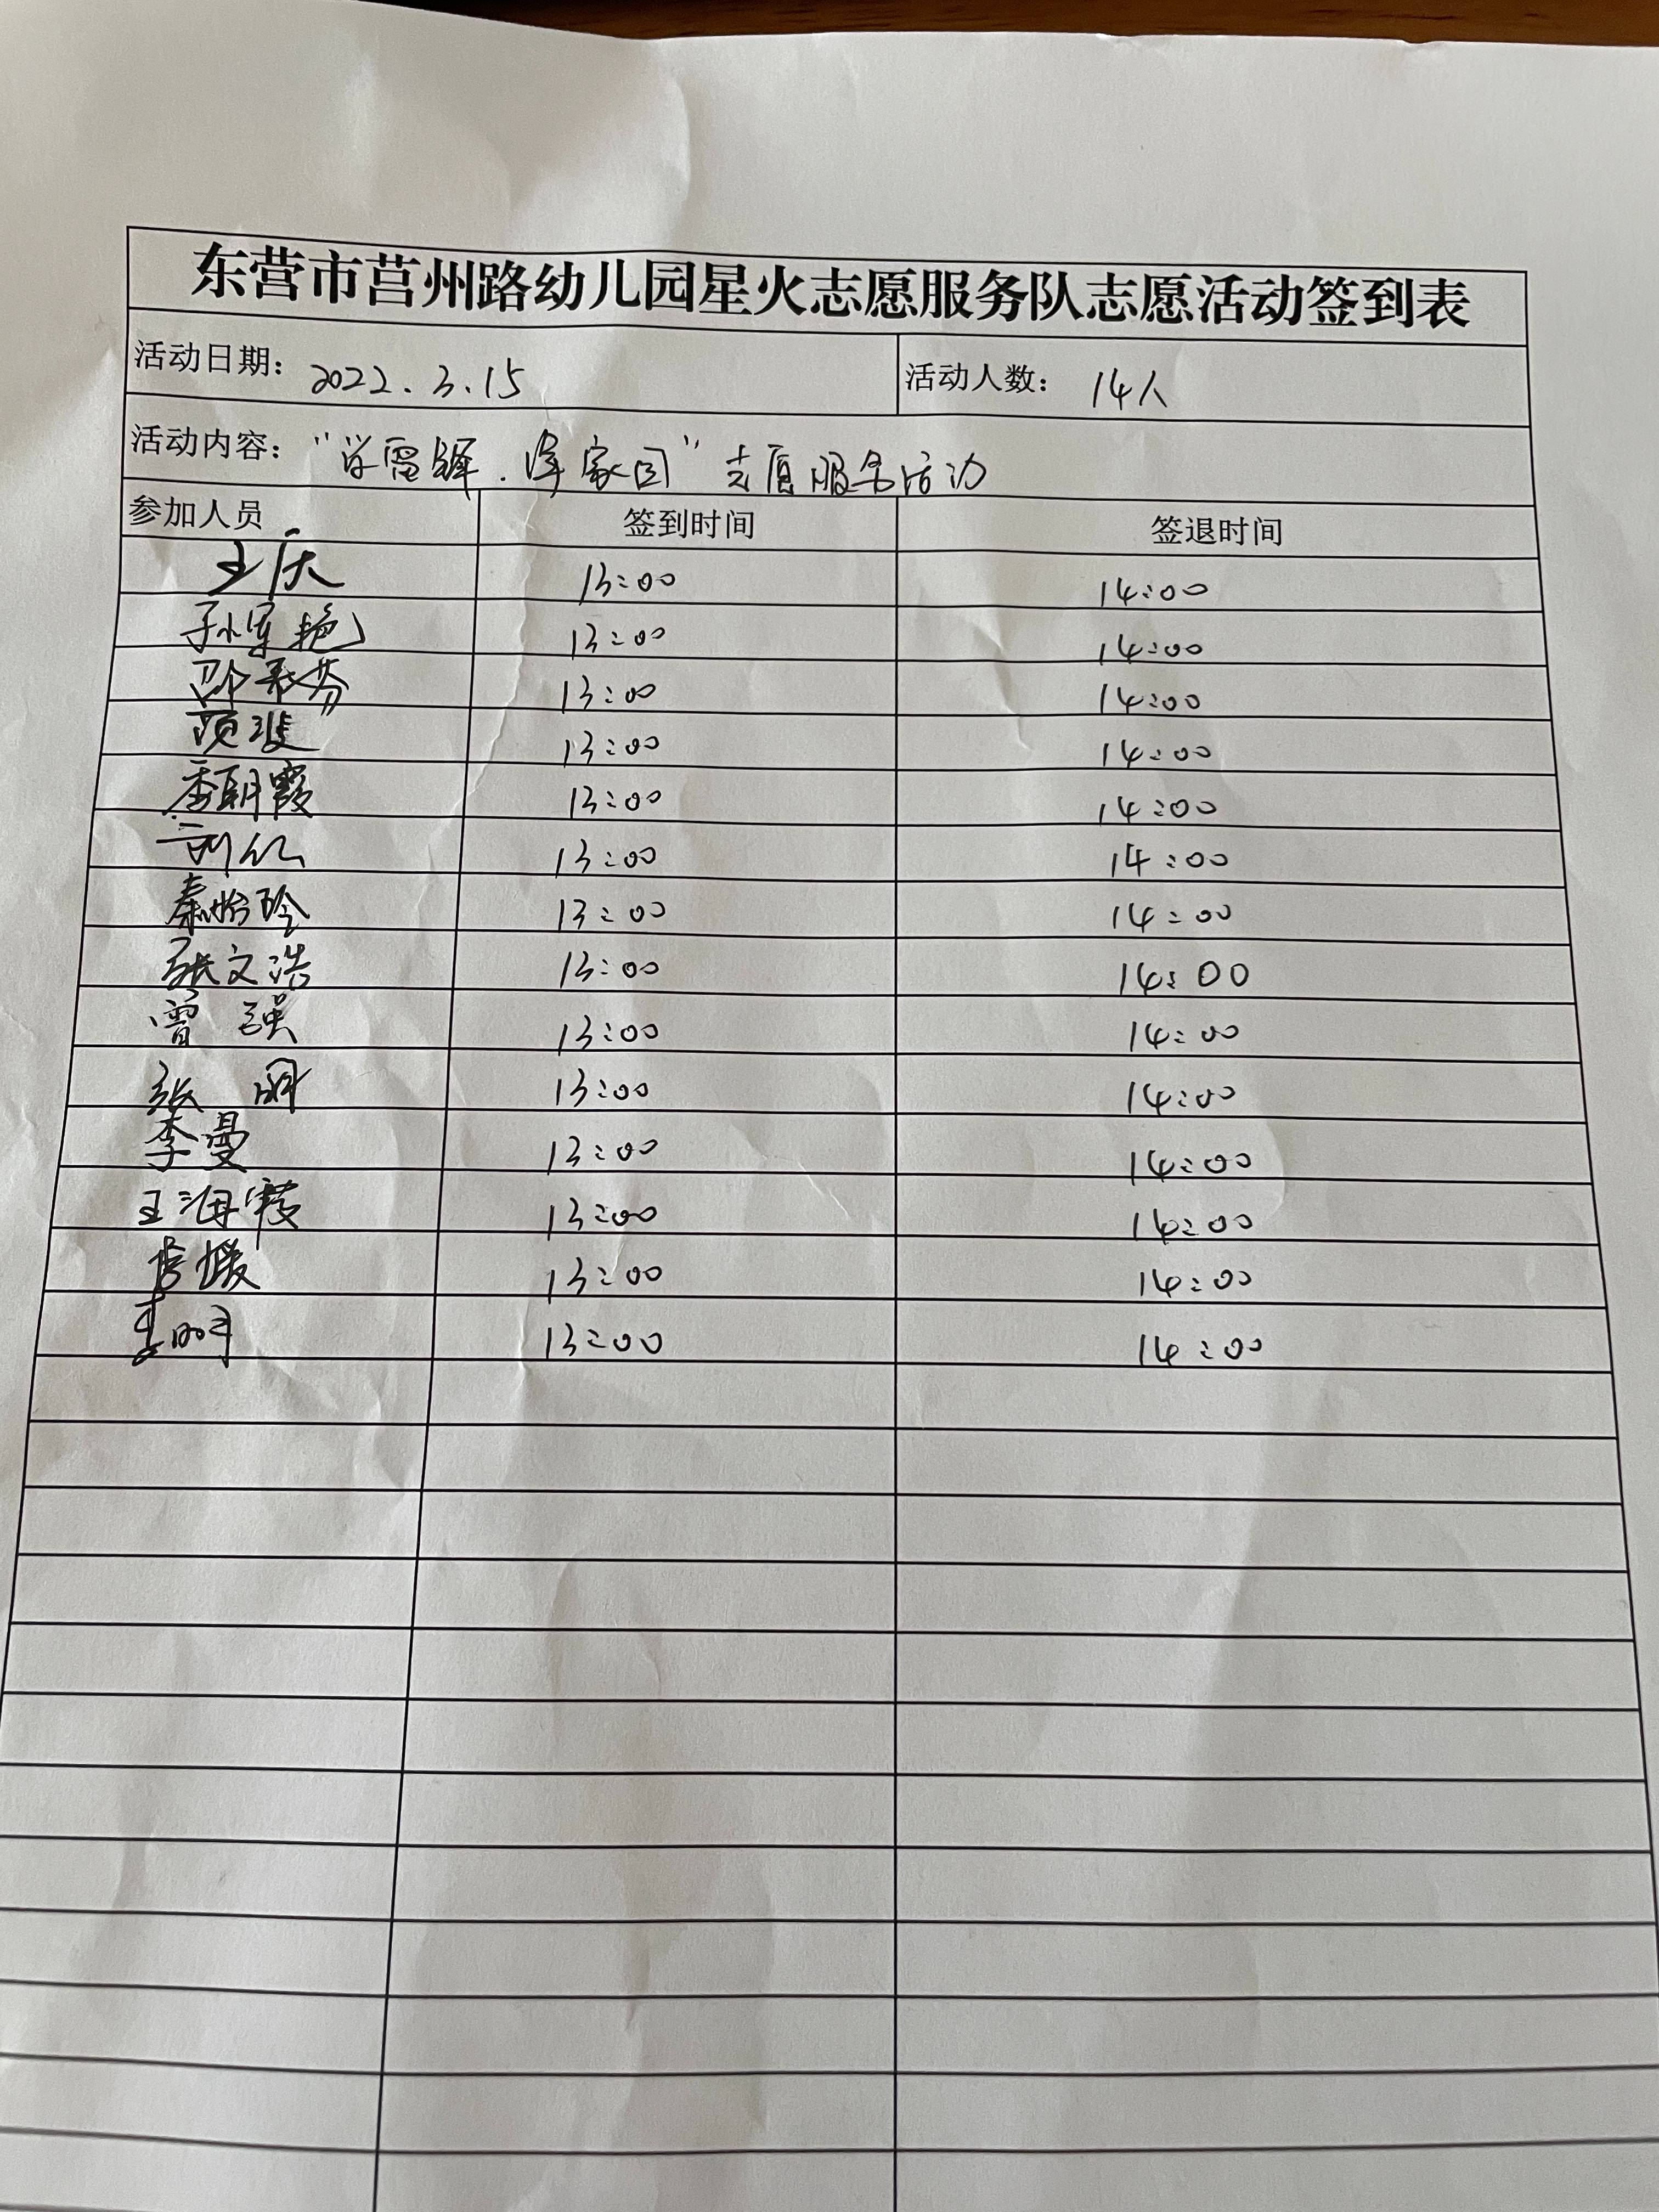 东营市莒州路幼儿园星火志愿服务队志愿活动签到表
活动日期: 2022.3.15 活动人数: 14人
活动内容: “学雷锋.净家园”志愿服务活动
参加人员 签到时间 签退时间
王庆 13:00 14:00
孙军艳 13:00 14:00
13:00 14:00
13:00 14:00
季朝霞 13:00 14:00
13:00 14:00
秦怡玲 13:00 14:00
张文浩 13:00 14:00
曾强 13:00 14:00
张明 13:00 14:00
李曼 13:00 14:00
王海霞 13:00 14:00
13:00 14:00
13:00 14:00